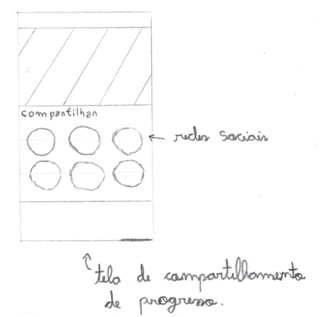 compartilhar
← redes sociais
tela de compartilhamento
de progresso.